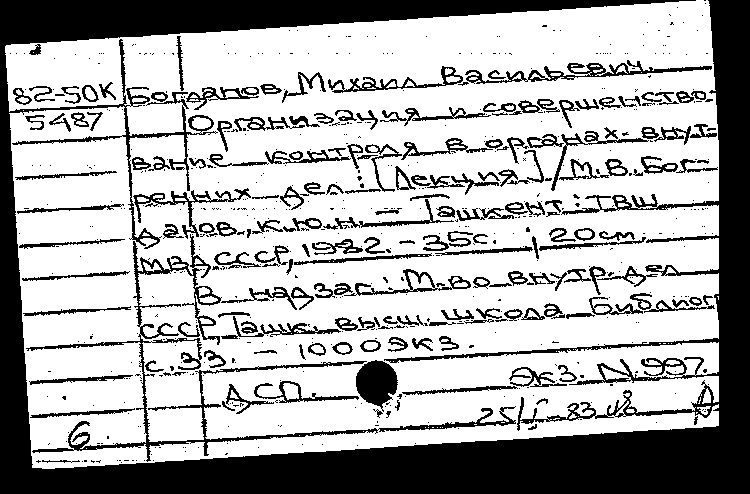 82-50К Богданов, Михаил Васильевич.
5487 Организация и совершенство-
вание контроля в органах внут-
ренних дел : [Лекция] / М.В. Бог-
данов, к.ю.н. — Ташкент : ТВШ
МВД СССР, 1982. - 35с. ; 20см.
В надзаг.: М-во внутр. дел
СССР, Ташк. высш. школа. Библиог
с.33. — 1000экз.
ДСП. Экз. N.997.
6 25/I-83